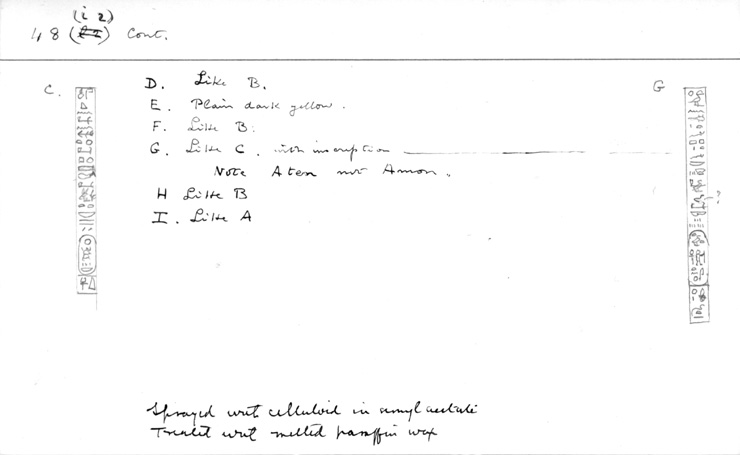 (i 2)
48 () Cont.
C.
D. Like B.
E. Plain dark yellow.
F. Like B.
G. Like C. with inscription
Note Aten not Amon.
H Like B
I. Like A
G
?
Sprayed with celluloid in amyl acetate
Treated with melted paraffin wax